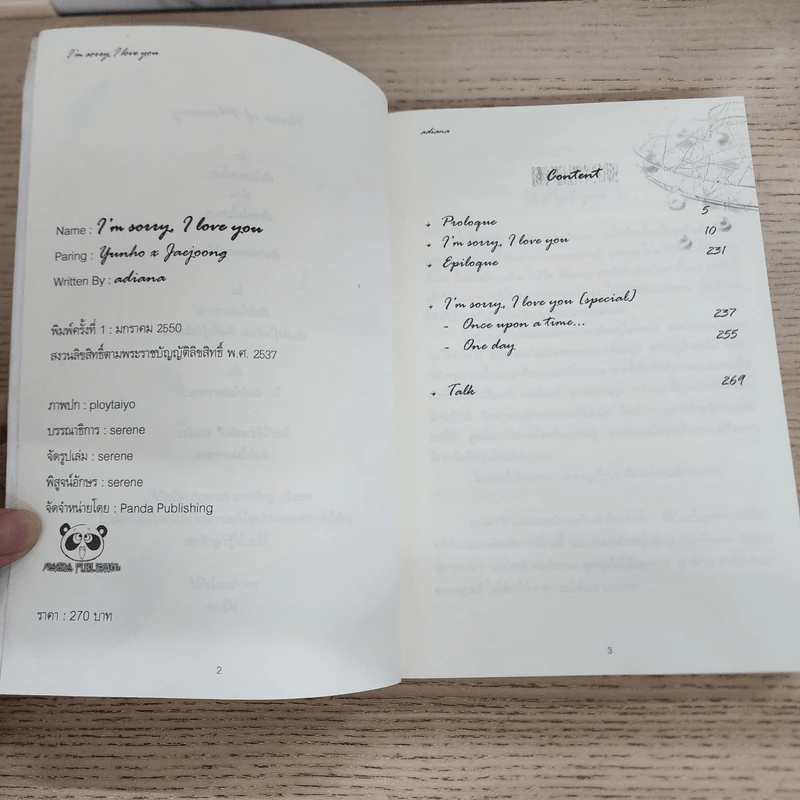 I'm sorry, I love you
Name : I'm sorry, I love you
Paring : Yunho x Jaejoong
Written By : adiana
พิมพ์ครั้งที่ 1 : มกราคม 2550
สงวนลิขสิทธิ์ตามพระราชบัญญัติลิขสิทธิ์ พ.ศ. 2537
ภาพปก : ploytaiyo
บรรณาธิการ : serene
จัดรูปเล่ม : serene
พิสูจน์อักษร : serene
จัดจำหน่ายโดย : Panda Publishing
PANDA PUBLISHING
ราคา : 270 บาท
2
adiana
Content
Prologue 5
I'm sorry, I love you 10
Epilogue 231
I'm sorry, I love you (special)
- Once upon a time... 237
- One day 255
Talk 269
3